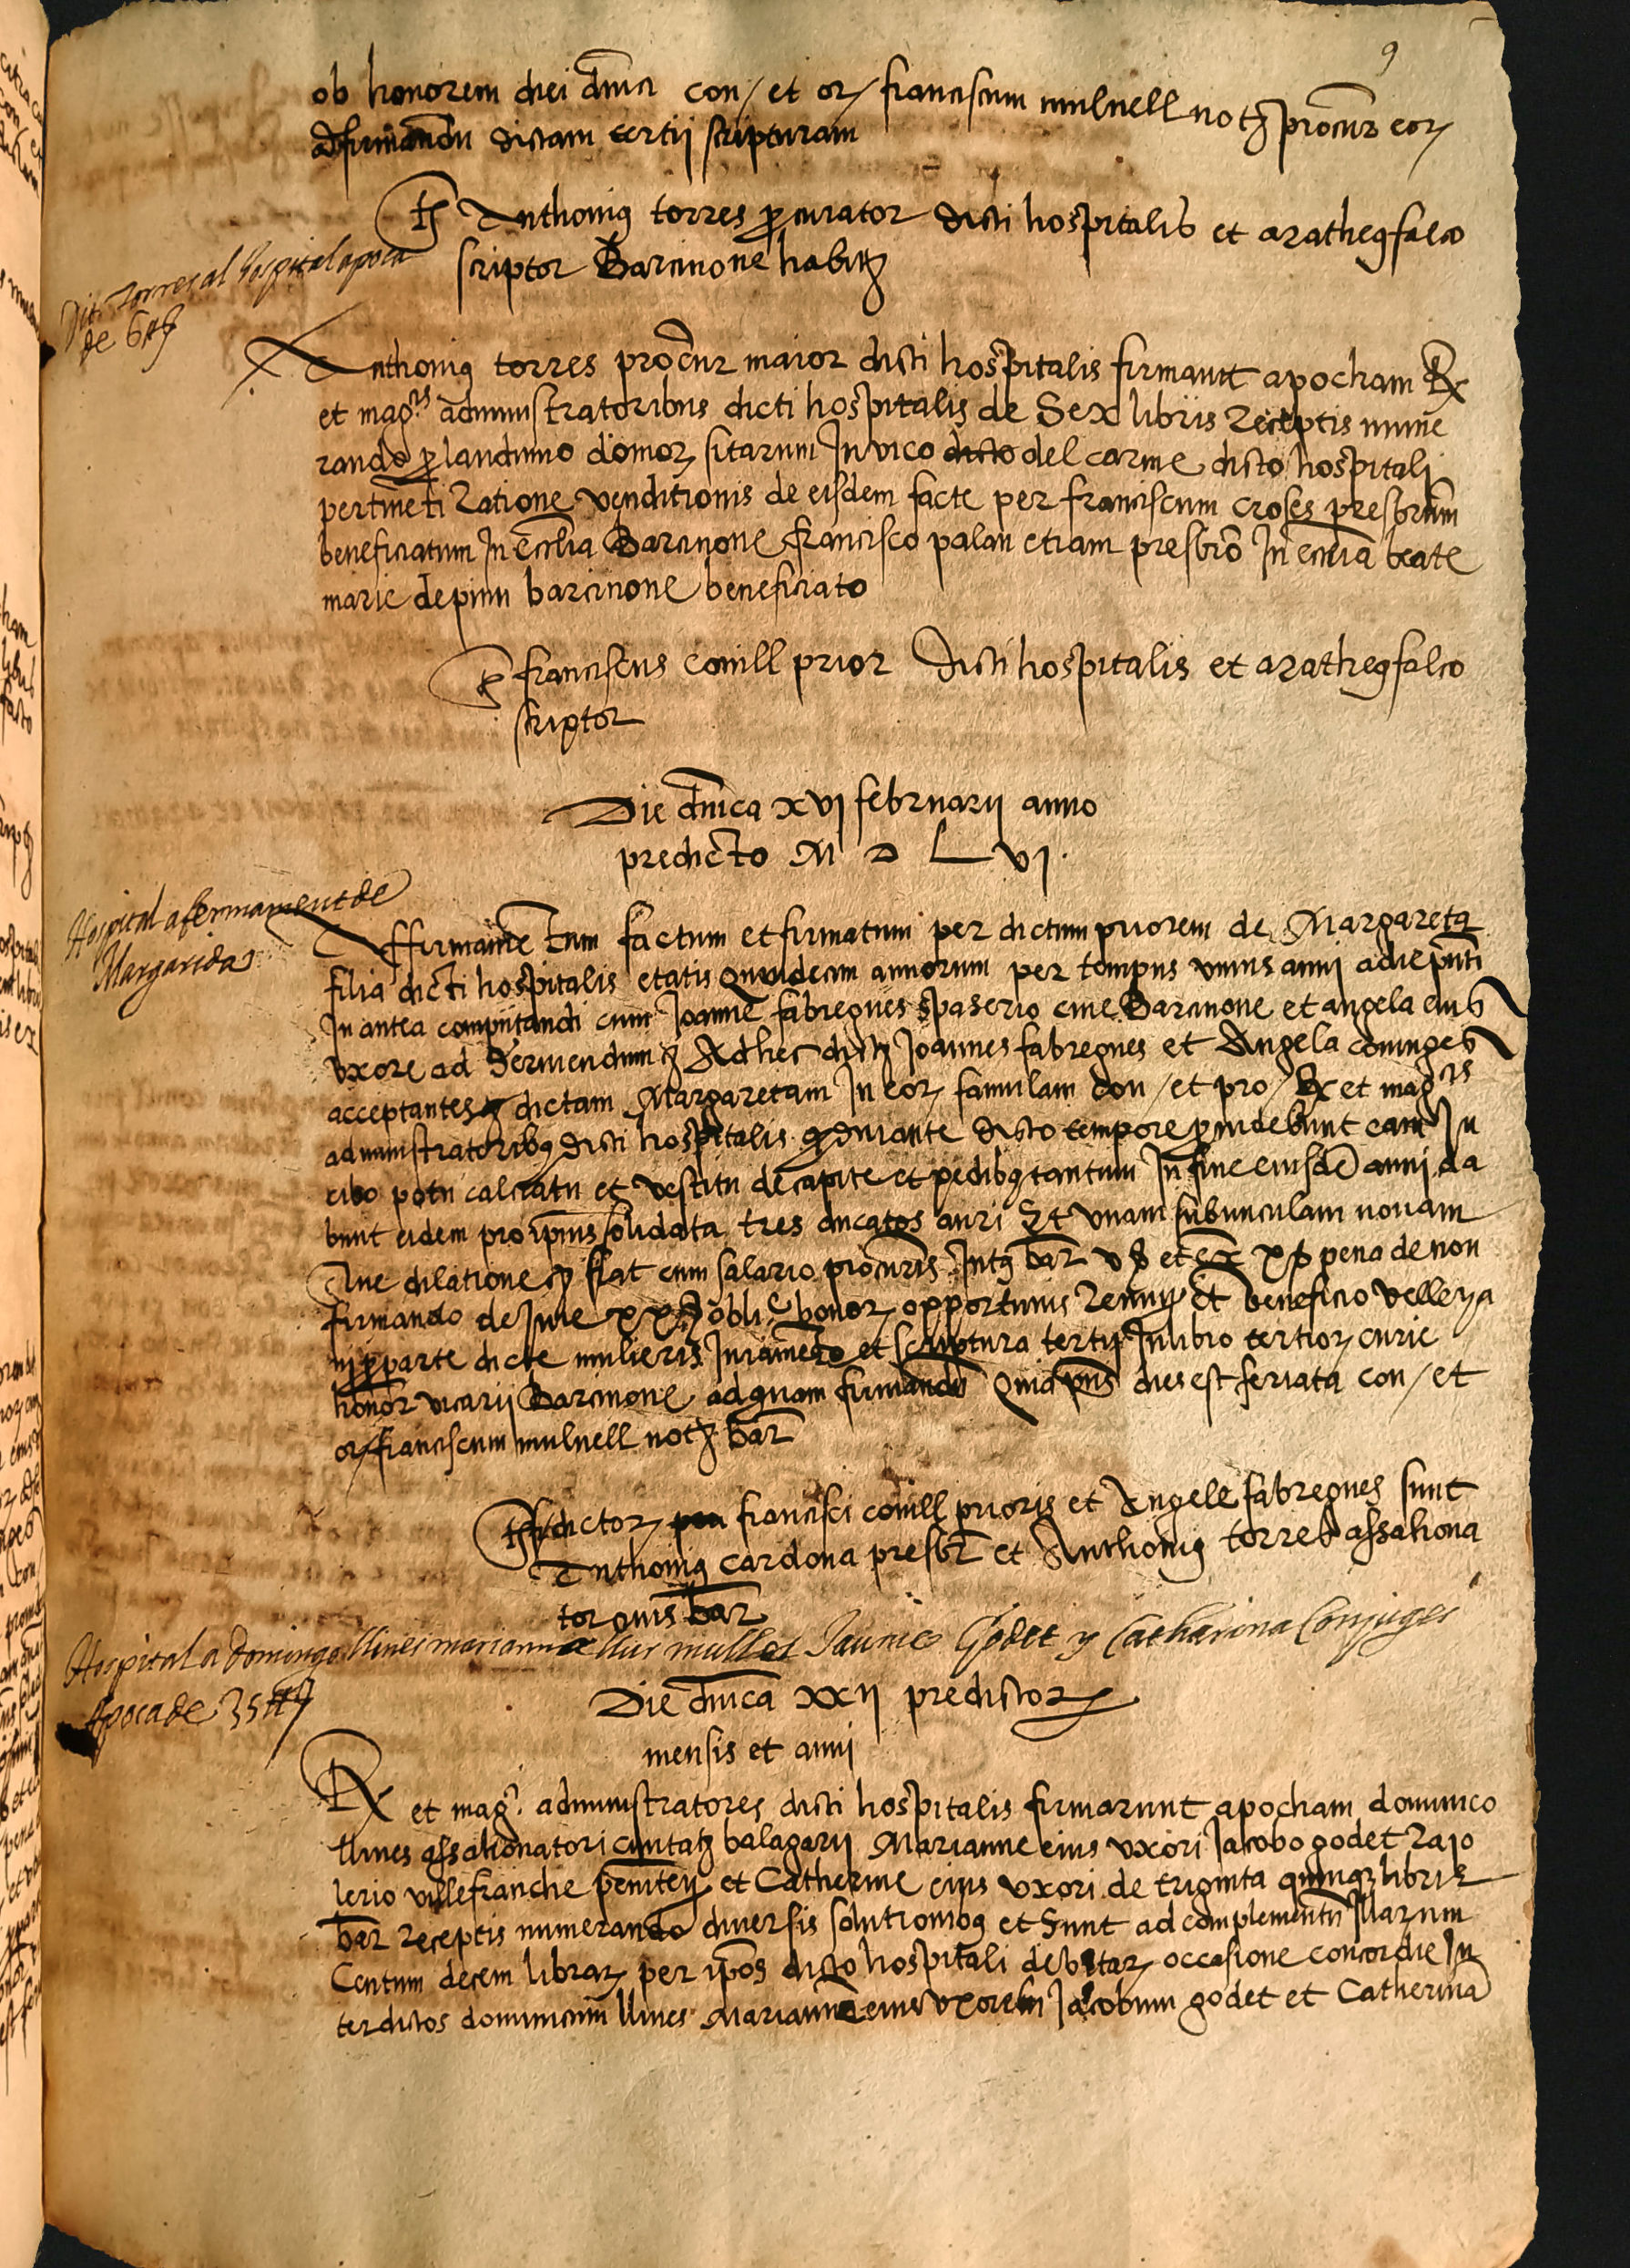 9
ob honorem diei dnici con / et or / franciscum mulnell not procur eor
ad firmandu dictam tertij scripturam
Ts Anthonius torres procurator dicti hospitalis et aratheus falco
scriptor Barcinone habit
Dit Torres al hospital apoca
de 6 ll
Anthonius torres procur maior dicti hospitalis firmavit apocham R
et magcis administratoribus dicti hospitalis de Sex libris Receptis nume
rando p laudimio domor sitarum In vico dicto del carme dicto hospitali
pertineti Ratione venditionis de eisdem facte per franciscum croses presbrum
beneficiatum In ecclia Barcinone francisco palau etiam presbro In ecclia beate
marie de pinu barcinone beneficiato
Ts franciscus conill prior Dicti hospitalis et aratheus falco
scriptor
Die dnica xvj februarij anno
predicto M D L vj
Hospital afermament de
Margarida
Affirmametum factum et firmatum per dictum priorem de Margareta
filia dicti hospitalis etatis quidecim annorum per tempus unius anni a die pnti
In antea computandi cum Joanne fabregues spaserio cive Barcinone et angela eius
uxore ad serviendum Ad hec dict Joannes fabregues et Angela coniuges
acceptantes dictam Margaretam In eor famulam con / et pro / R et magcis
administratoribus dicti hospitalis q durante dicto tempore providebunt eam In
cibo potu calciatu et vestitu de capite et pedibus tantum In fine eiusde anni da
bunt eidem pro ipius solidata tres ducatos auri Et unam subunculam novam
Sine dilatione fiat cum salario procuris Int bar v s et ex x s pena de non
firmando de Jure xx s obli bonor opportunis Renun Et beneficio velleya
nj p parte dicte mulieris Juramēto et scriptura tertij In libro tertior curie
honor vicarij Barcinone ad quam firmandu Quia pns dies est feriata con / et
or / franciscum mulnell not bar
Ts dictor francisci conill prioris et Angele fabregues sunt
Anthonius cardona presbr et Anthonius torres assahona
tor civis bar
Hospital a Domingo llines marianna llur muller Jaume Godet y Catharina Conjuges
Apoca de 35 ll
Die dnica xxij predictor
mensis et anni
R et mag administratores dicti hospitalis firmarunt apocham dominico
llines assahonatori civitat balagarij Marianne eius uxori Jacobo godet Rajo
lerio villefranche peniten et Catherine eius uxori de triginta quinq libris
bar Receptis numerando diversis solutionibus et Sunt ad complementu Illarum
Centum decem librar per ipos dicto hospitali debitar occasione concordie In
ter dictos dominicum llines Mariannā eius uxorem Jacobum godet et Catherina